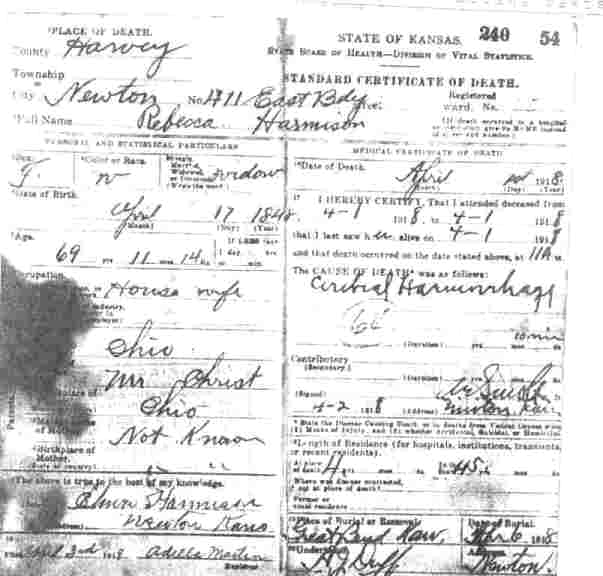 PLACE OF DEATH.
County Harvey
Township
City Newton No. 1711 East Bdy
Full Name Rebecca Harmison
STATE OF KANSAS. 240 54
STATE BOARD OF HEALTH—DIVISION OF VITAL STATISTICS.
STANDARD CERTIFICATE OF DEATH.
Registered
ward. No.
(If death occurred in a hospital
PERSONAL AND STATISTICAL PARTICULARS
Sex. F. Color or Race. W Single, Married, Widowed, or Divorced (Write the word) Widow
Date of Birth
April 17 1848
(Month) (Day) (Year)
Age.
69 yrs 11 mos 14 ds
Occupation.
House wife
Ohio
Mr. Christ
Ohio
Not Known
Birthplace of
Mother.
The above is true to the best of my knowledge.
Harmison
Newton Kans.
Filed April 3rd 1918 Adella
MEDICAL CERTIFICATE OF DEATH
Date of Death. April 1918
(Day) (Year)
I HEREBY CERTIFY, That I attended deceased from
4-1 1918 to 4-1 1918
that I last saw her alive on 4-1 1918
and that death occurred on the date stated above, at 11A m.
The CAUSE OF DEATH* was as follows:
Cerebral Hamorrhage
(Duration) yrs mos ds
Contributory
(Secondary)
(Duration) yrs mos ds
(Signed)
4-2 1918 (Address) Newton, Kan
* State the Disease Causing Death, or in deaths from Violent Causes state
(1) Means of Injury, and (2) whether Accidental, Suicidal, or Homicidal.
Length of Residence (for hospitals, institutions, transients,
or recent residents).
At place
of death 4 yrs mos ds 45
Where was disease contracted,
if not at place of death?
Former or
usual residence
Place of Burial or Removal. Date of Burial.
Great Bend Kan. Apr 6 1918
Undertaker Address
Duff Newton.